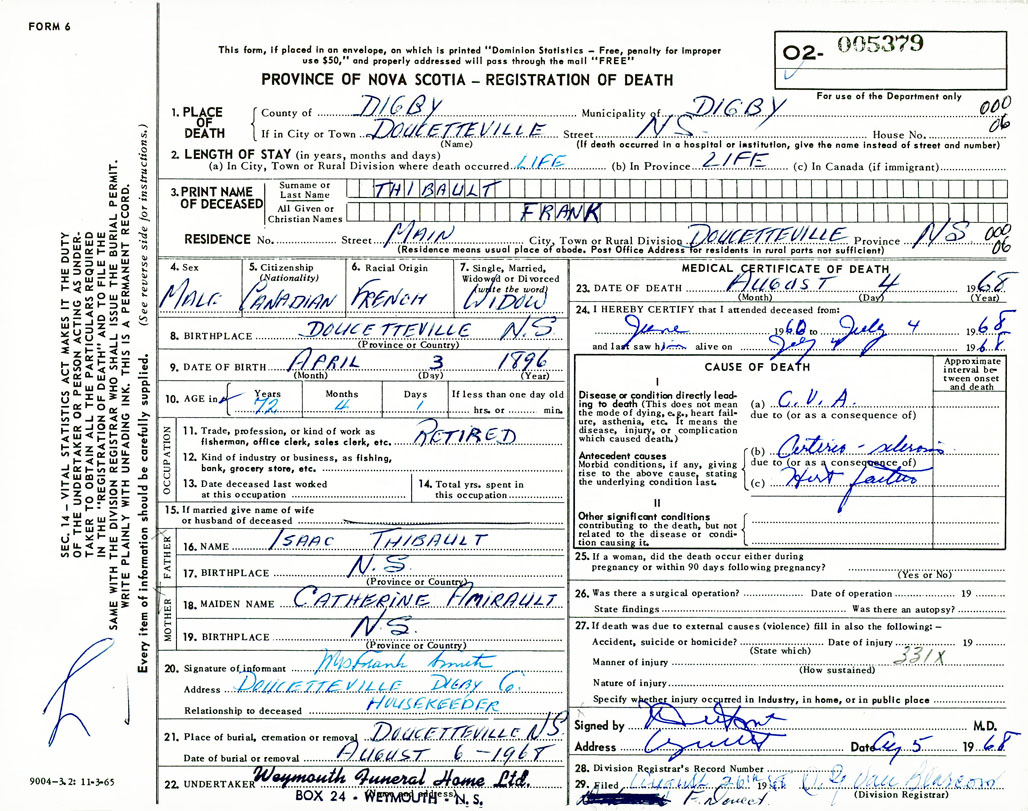 FORM 6
This form, if placed in an envelope, on which is printed "Dominion Statistics – Free, penalty for improper
use $50," and properly addressed will pass through the mail "FREE"
O2- 005379
PROVINCE OF NOVA SCOTIA – REGISTRATION OF DEATH
For use of the Department only
1. PLACE OF DEATH
County of DIGBY Municipality of DIGBY 000
If in City or Town DOUCETTEVILLE Street NS. House No. 06
(Name) (If death occurred in a hospital or institution, give the name instead of street and number)
2. LENGTH OF STAY (in years, months and days)
(a) In City, Town or Rural Division where death occurred LIFE (b) In Province LIFE (c) In Canada (if immigrant)
3. PRINT NAME OF DECEASED
Surname or Last Name THIBAULT
All Given or Christian Names FRANK
RESIDENCE No. Street MAIN City, Town or Rural Division DOUCETTEVILLE Province NS 000 06
(Residence means usual place of abode. Post Office Address for residents in rural parts not sufficient)
4. Sex MALE
5. Citizenship (Nationality) CANADIAN
6. Racial Origin FRENCH
7. Single, Married, Widowed or Divorced (write the word) WIDOW
8. BIRTHPLACE DOUCETTEVILLE N.S.
(Province or Country)
9. DATE OF BIRTH APRIL 3 1896
(Month) (Day) (Year)
10. AGE in Years 72 Months 4 Days 1 If less than one day old hrs. or min.
OCCUPATION
11. Trade, profession, or kind of work as fisherman, office clerk, sales clerk, etc. RETIRED
12. Kind of industry or business, as fishing, bank, grocery store, etc.
13. Date deceased last worked at this occupation
14. Total yrs. spent in this occupation
15. If married give name of wife or husband of deceased
FATHER
16. NAME ISAAC THIBAULT
17. BIRTHPLACE N.S.
(Province or Country)
MOTHER
18. MAIDEN NAME CATHERINE AMIRAULT
19. BIRTHPLACE N.S.
(Province or Country)
20. Signature of informant Mrs Frank Smith
Address DOUCETTEVILLE DIGBY C.
Relationship to deceased HOUSEKEEDER
21. Place of burial, cremation or removal DOUCETTEVILLE N.S.
Date of burial or removal AUGUST 6 – 1968
22. UNDERTAKER Weymouth Funeral Home Ltd.
(Name and address)
BOX 24 - WEYMOUTH - N.S.
MEDICAL CERTIFICATE OF DEATH
23. DATE OF DEATH AUGUST 4 1968
(Month) (Day) (Year)
24. I HEREBY CERTIFY that I attended deceased from:
June 1960 to July 4 1968
and last saw him alive on July 4 1968
CAUSE OF DEATH
Approximate interval between onset and death
I
Disease or condition directly leading to death (This does not mean the mode of dying, e.g., heart failure, asthenia, etc. It means the disease, injury, or complication which caused death.)
(a) C.V.A.
due to (or as a consequence of)
Antecedent causes
Morbid conditions, if any, giving rise to the above cause, stating the underlying condition last.
(b) Arterio-sclerosis
due to (or as a consequence of)
(c)
II
Other significant conditions contributing to the death, but not related to the disease or condition causing it.
25. If a woman, did the death occur either during pregnancy or within 90 days following pregnancy?
(Yes or No)
26. Was there a surgical operation? Date of operation 19
State findings Was there an autopsy?
27. If death was due to external causes (violence) fill in also the following: –
Accident, suicide or homicide? Date of injury 19
(State which)
Manner of injury 331X
(How sustained)
Nature of injury
Specify whether injury occurred in Industry, in home, or in public place
Signed by M.D.
Address Date Aug 5 1968
28. Division Registrar's Record Number
29. Filed August 26th 1968
(Division Registrar)
F. Doucet
SEC. 14 – VITAL STATISTICS ACT MAKES IT THE DUTY
OF THE UNDERTAKER OR PERSON ACTING AS UNDER-
TAKER TO OBTAIN ALL THE PARTICULARS REQUIRED
IN THE "REGISTRATION OF DEATH" AND TO FILE THE
SAME WITH THE DIVISION REGISTRAR WHO SHALL ISSUE THE BURIAL PERMIT.
WRITE PLAINLY WITH UNFADING INK. THIS IS A PERMANENT RECORD.
Every item of information should be carefully supplied. (See reverse side for instructions.)
9004-3.2: 11-3-65